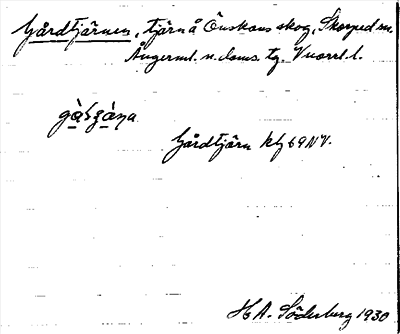 Gårdtjärnen, tjärn å Önskans skog, Skorped sn.
Ångerml. n. doms. tg. V norrl. l.
Gårdtjärn kbl 69 NV.
H A. Söderberg 1930